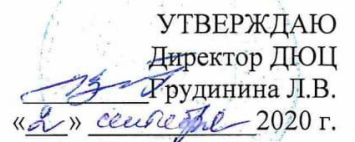 УТВЕРЖДАЮ
Директор ДЮЦ
Грудинина Л.В.
«2» сентября 2020 г.